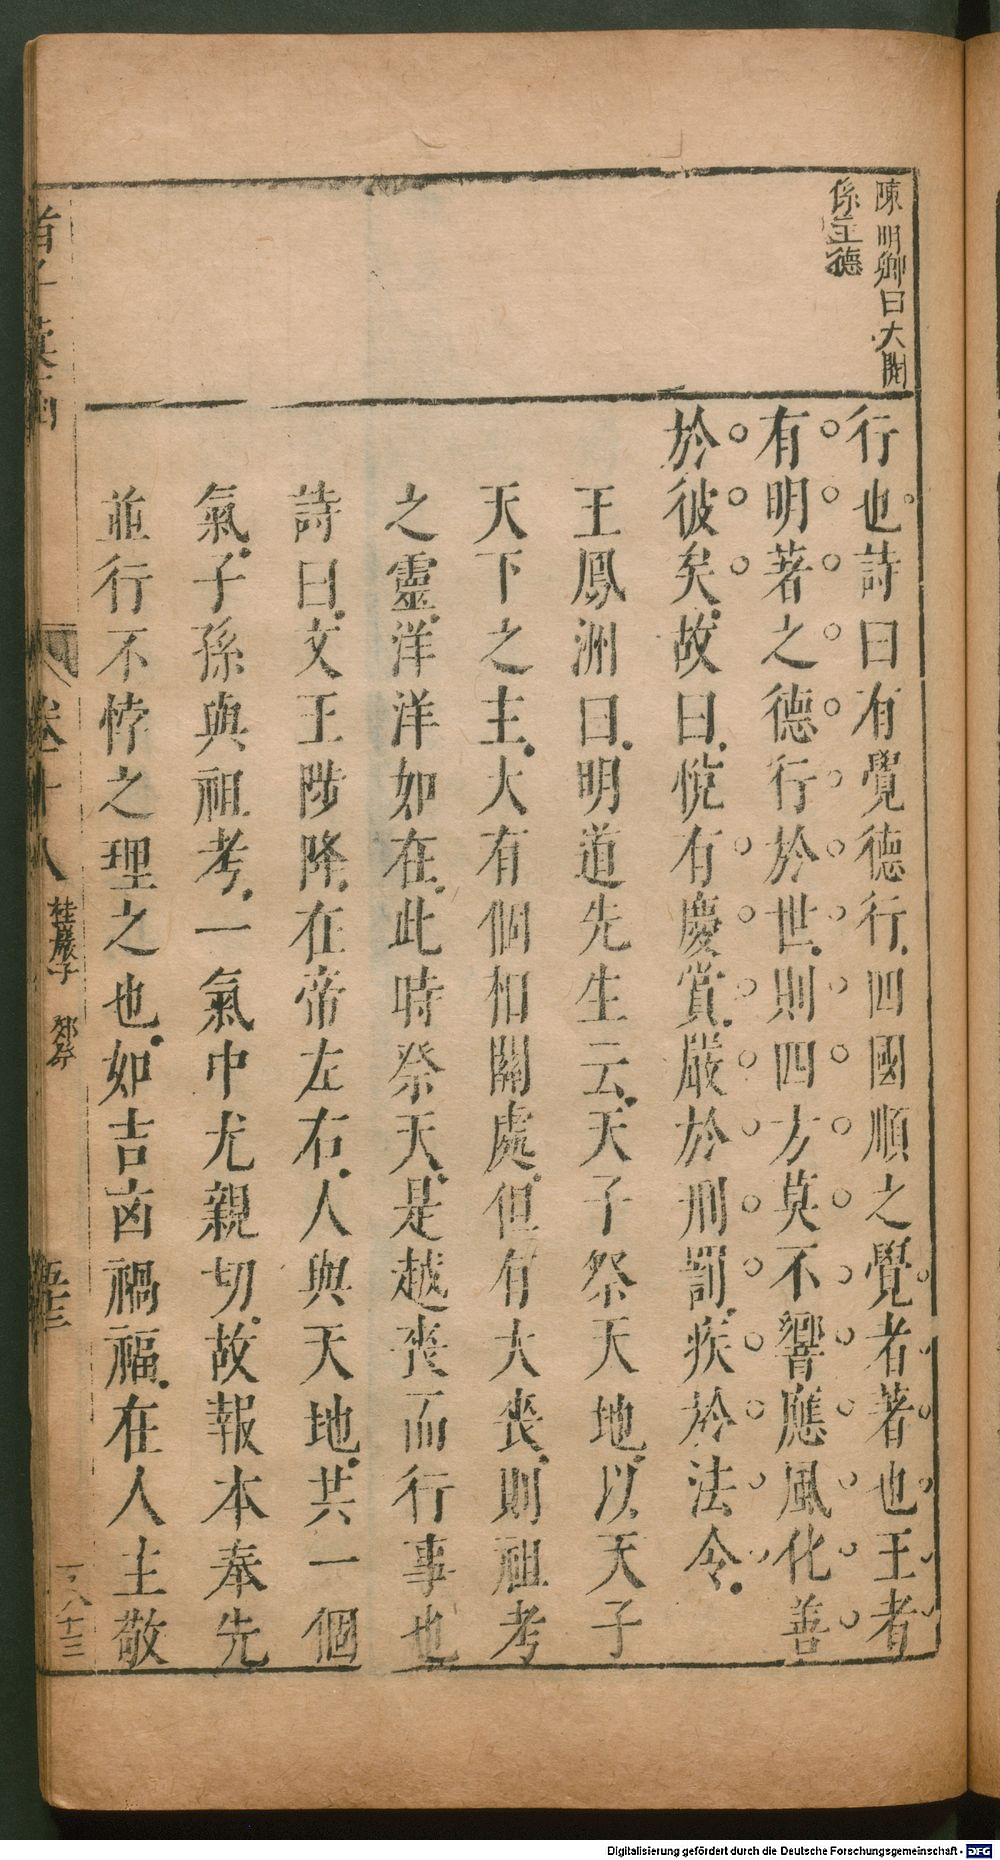 陳明卿曰大開
係王德
行也詩曰有覺德行四國順之覺者著也王者
有明著之德行於世則四方莫不響應風化善
於彼矣故曰悅有慶賞嚴於刑罰疾於法令
王鳳洲曰明道先生云天子祭天地以天子
天下之主大有個相關處但有大喪則祖考
之靈洋洋如在此時祭天是越喪而行事也
詩曰文王陟降在帝左右人與天地共一個
氣子孫與祖考一氣中尤親切故報本奉先
並行不悖之理之也如吉凶禍福在人主敬
卷十八
桂巖子
郊祭
Digitalisierung gefördert durch die Deutsche Forschungsgemeinschaft - DFG